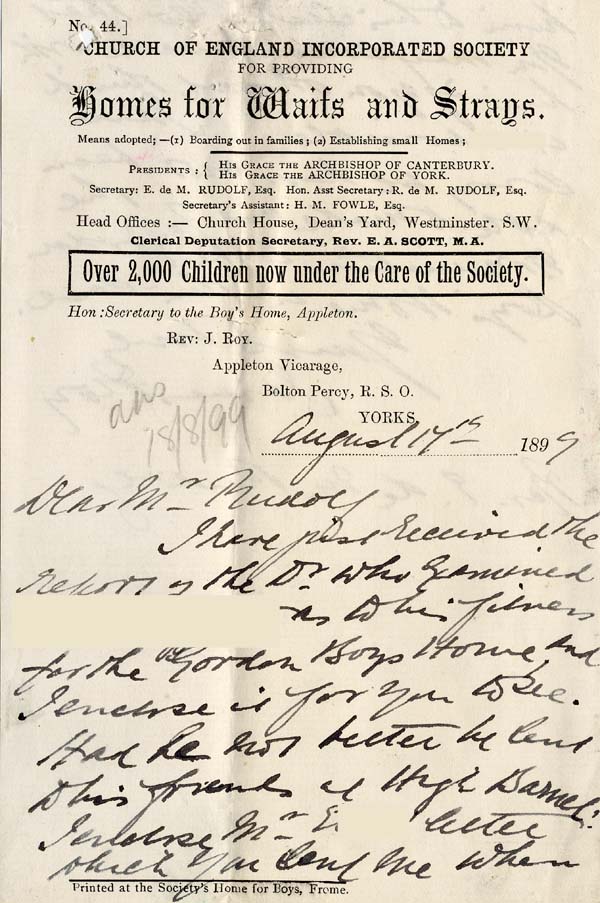 No. 44.]
CHURCH OF ENGLAND INCORPORATED SOCIETY
FOR PROVIDING
Homes for Waifs and Strays.
Means adopted; —(1) Boarding out in families; (2) Establishing small Homes;
PRESIDENTS: { HIS GRACE THE ARCHBISHOP OF CANTERBURY.
HIS GRACE THE ARCHBISHOP OF YORK.
Secretary: E. de M. RUDOLF, Esq. Hon. Asst Secretary: R. de M. RUDOLF, Esq.
Secretary's Assistant: H. M. FOWLE, Esq.
Head Offices :— Church House, Dean's Yard, Westminster. S.W.
Clerical Deputation Secretary, Rev. E. A. SCOTT, M.A.
Over 2,000 Children now under the Care of the Society.
Hon: Secretary to the Boy's Home, Appleton.
REV: J. ROY.
Appleton Vicarage,
Bolton Percy, R. S. O.
YORKS,
ans
18/8/99
August 17th 1899
Dear Mr Rudolf
I have just received the
report of the Dr. who examined
as to his fitness
for the Gordon Boys Home, and
I enclose it for you to see.
Had he not better be sent
to his friends at High Barnet.
I enclose Mr E letter
which you sent me when
Printed at the Society's Home for Boys, Frome.